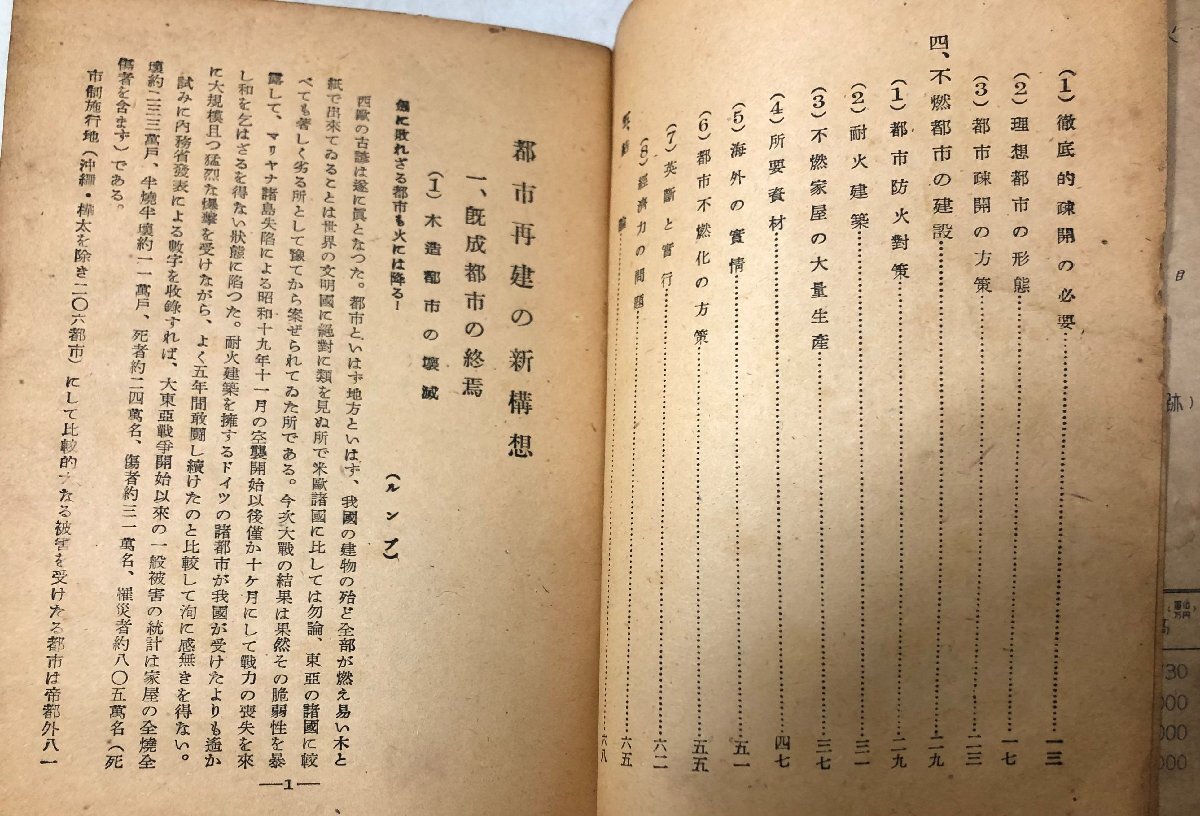 (1)徹底的疎開の必要……一三
(2)理想都市の形態……一七
(3)都市疎開の方策……二三
四、不燃都市の建設……二九
(1)都市防火對策……二九
(2)耐火建築……三一
(3)不燃家屋の大量生産……三七
(4)所要資材……四七
(5)海外の實情……五一
(6)都市不燃化の方策……五五
(7)英斷と實行……六二
(8)經濟力の問題……六五
結論……六八
都市再建の新構想
一、旣成都市の終焉
(1)木造都市の壊滅
劍に敗れざる都市も火には降る!
(ルンプ)
西歐の古諺は遂に眞となつた。都市といはず地方といはず、我國の建物の殆ど全部が燃え易い木と
紙で出來てゐることは世界の文明國に絕對に類を見ぬ所で米歐諸國に比しては勿論、東亞の諸國に較
べても著しく劣る所として豫てから案ぜられてゐた所である。今次大戰の結果は果然その脆弱性を暴
露して、マリヤナ諸島失陷による昭和十九年十一月の空襲開始以後僅か十ケ月にして戰力の喪失を來
し和を乞はざるを得ない狀態に陷つた。耐火建築を擁するドイツの諸都市が我國が受けたよりも遙か
に大規模且つ猛烈な爆擊を受けながら、よく五年間敢鬪し續けたのと比較して洵に感無きを得ない。
試みに內務省發表による數字を收錄すれば、大東亞戰爭開始以來の一般被害の統計は家屋の全燒全
壞約二三三萬戶、半燒半壞約一一萬戶、死者約二四萬名、傷者約三一萬名、罹災者約八〇五萬名(死
傷者を含まず)である。
市制施行地(沖繩・樺太を除き二〇六都市)にして比較的大なる被害を受けたる都市は帝都外八一
—1—